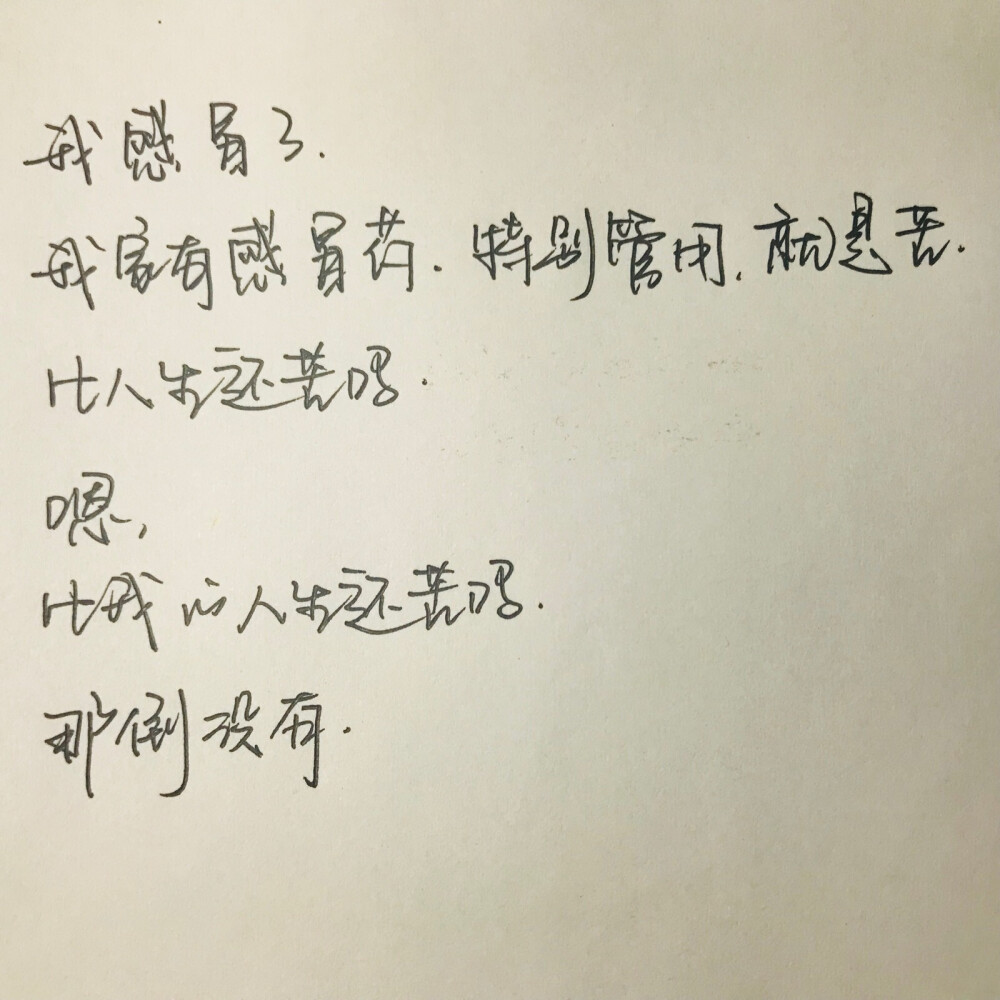 我感冒了.
我家有感冒药.特别管用,就是苦.
比人生还苦吗.
嗯,
比我的人生还苦吗.
那倒没有.